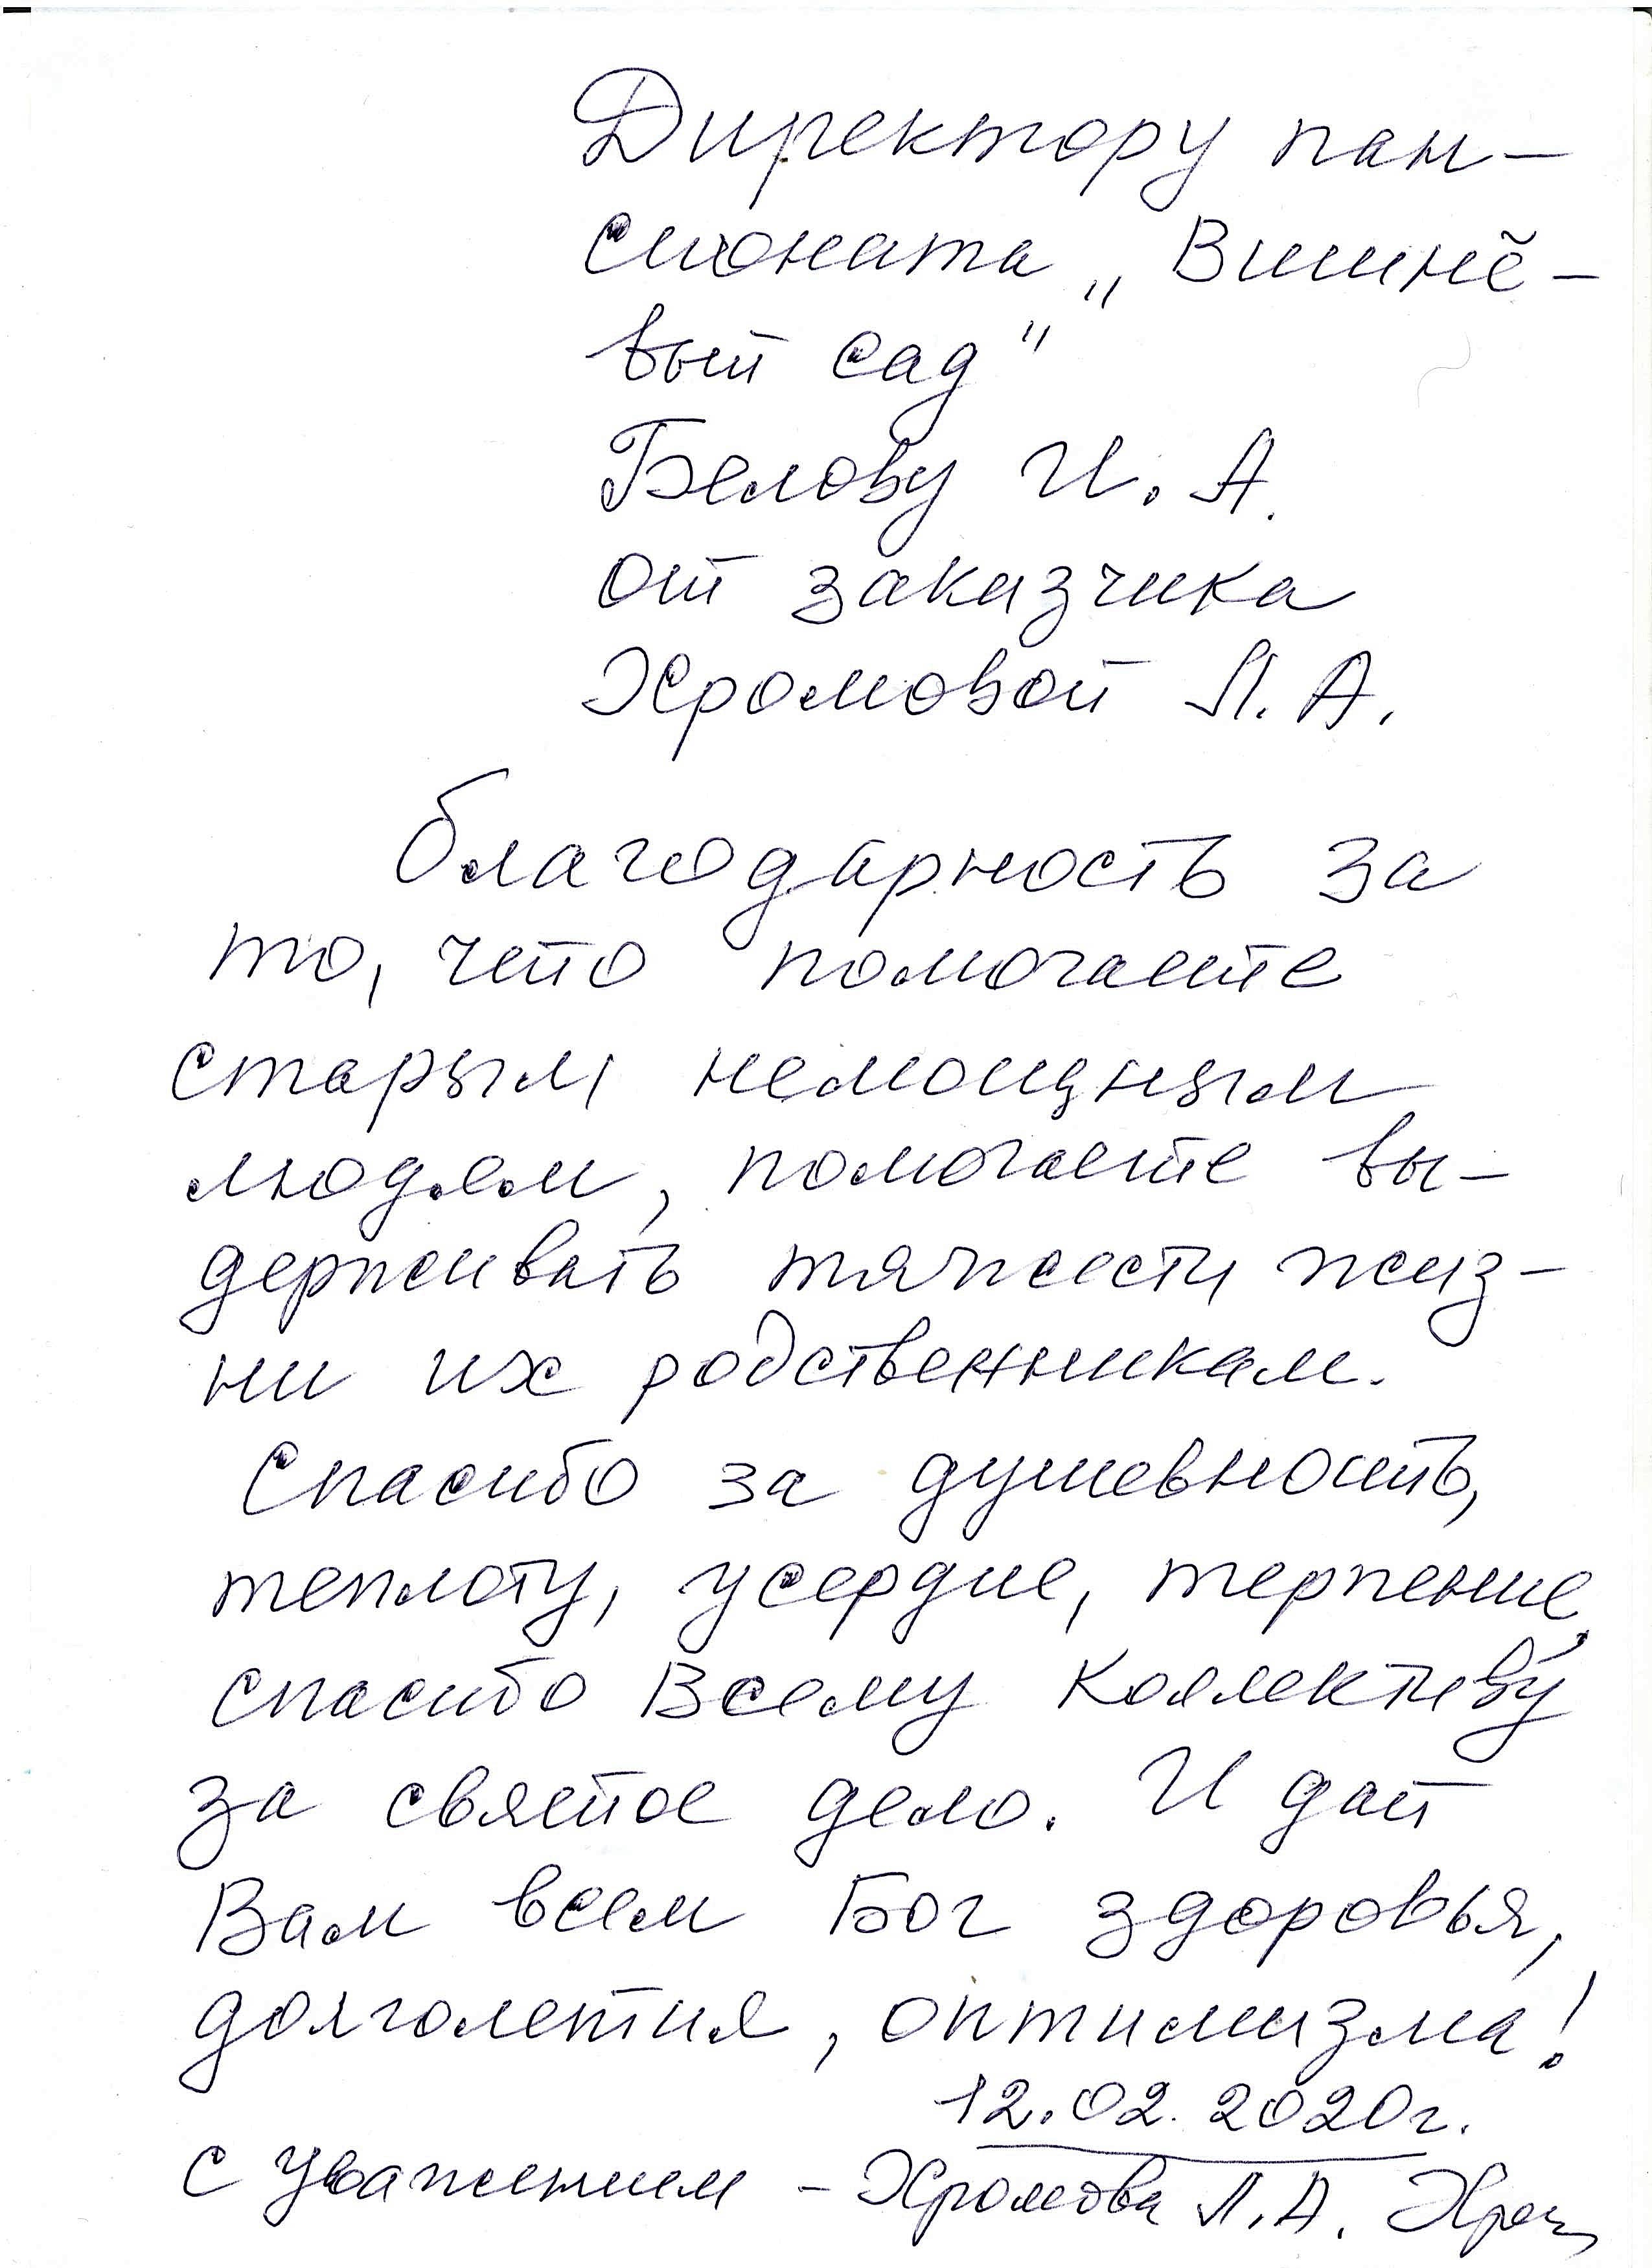 Директору пан-
сионата „Вишнё-
вый сад"
Белову И. А.
от заказчика
Хромовой Л. А.
благодарность за
то, что помогаете
старым немощным
людям, помогаете вы-
держивать тяжести жиз-
ни их родственникам.
Спасибо за душевность,
теплоту, усердие, терпение,
спасибо Всему Коллективу
за святое дело. И дай
Вам всем Бог здоровья,
долголетия, оптимизма!
12.02.2020г.
С Уважением - Хромова Л. А.